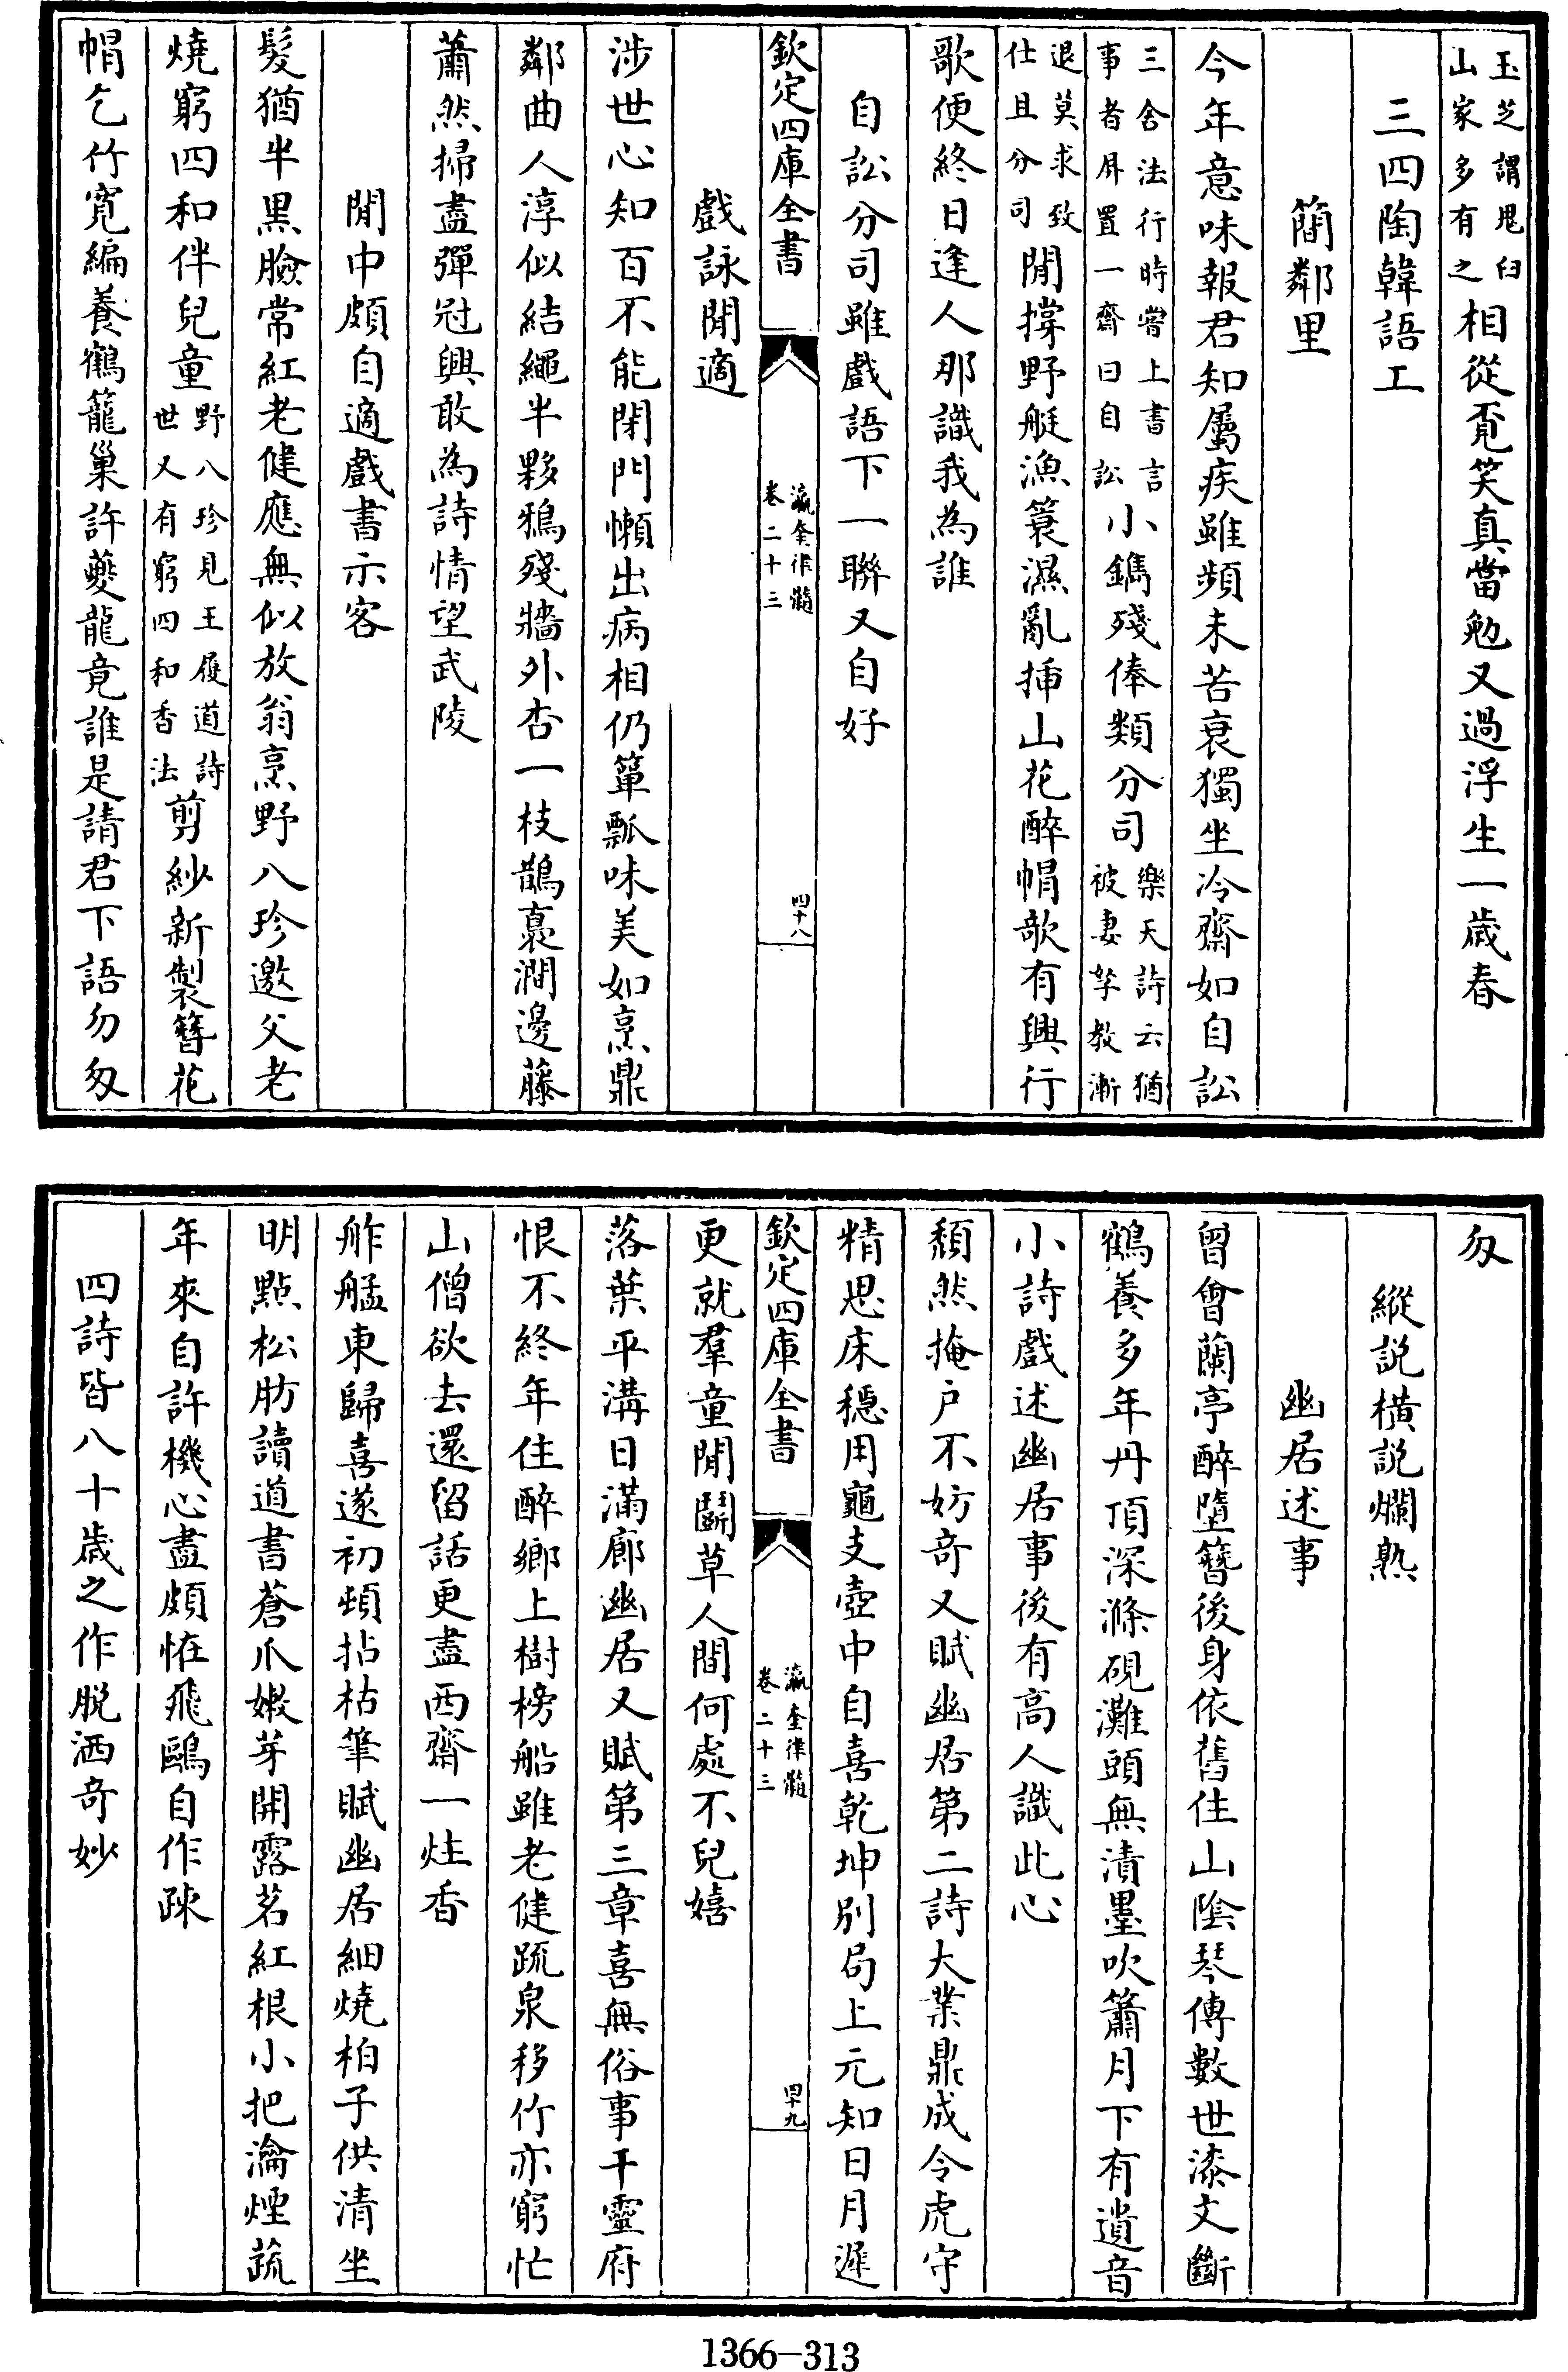 玉芝謂鬼臼山家多有之相從覔笑真當勉又過浮生一歲春
三四陶韓語工
簡鄰里
今年意味報君知屬疾雖頻未苦衰獨坐冷齋如自訟
三舍法行時嘗上書言事者屏置一齋曰自訟小鐫殘俸類分司樂天詩云猶被妻孥教漸
退莫求致仕且分司閒撐野艇漁簑濕亂揷山花醉帽欹有興行
歌便終日逢人那識我為誰
自訟分司雖戲語下一聯又自好
欽定四庫全書 瀛奎律髓卷二十三 四十八
戲詠閒適
涉世心知百不能閉門懶出病相仍簞瓢味美如烹鼎
鄰曲人淳似結繩半夥鴉殘牆外杏一枝鵲裊澗邊藤
蕭然掃盡彈冠興敢為詩情望武陵
閒中頗自適戲書示客
髮猶半黒臉常紅老健應無似放翁烹野八珍邀父老
燒窮四和伴兒童野八珍見王履道詩世又有窮四和香法剪紗新製簪花
帽乞竹寛編養鶴籠巢許夔龍竟誰是請君下語勿匆
匆
縱說横說爛熟
幽居述事
曾會蘭亭醉墮簪後身依舊住山隂琴傳數世漆文斷
鶴養多年丹頂深滌硯灘頭無漬墨吹簫月下有遺音
小詩戲述幽居事後有高人識此心
頹然掩户不妨奇又賦幽居第二詩大業鼎成令虎守
精思床穩用龜支壺中自喜乾坤别局上元知日月遲
欽定四庫全書 瀛奎律髓卷二十三 四十九
更就羣童閒鬭草人間何處不兒嬉
落葉平溝日滿廊幽居又賦第三章喜無俗事干靈府
恨不終年住醉鄉上樹榜船雖老健疏泉移竹亦窮忙
山僧欲去還留話更盡西齋一炷香
舴艋東歸喜遂初頻拈枯筆賦幽居細燒柏子供清坐
明點松肪讀道書蒼爪嫩芽開露茗紅根小把瀹煙蔬
年來自許機心盡頗怪飛鷗自作疎
四詩皆八十歲之作脱洒奇妙
1366-313